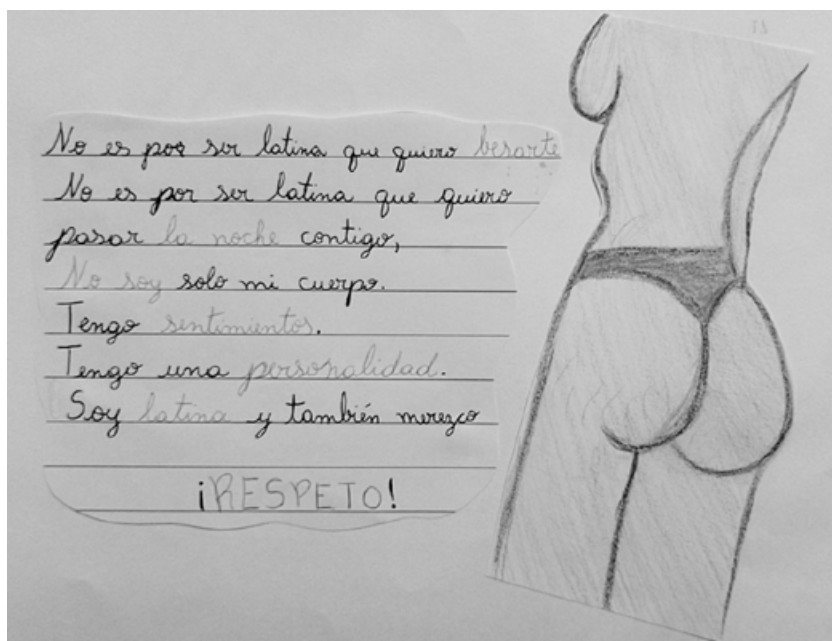 No es por ser latina que quiero besarte
No es por ser latina que quiero
pasar la noche contigo,
No soy solo mi cuerpo.
Tengo sentimientos.
Tengo una personalidad.
Soy latina y también merezco
¡RESPETO!